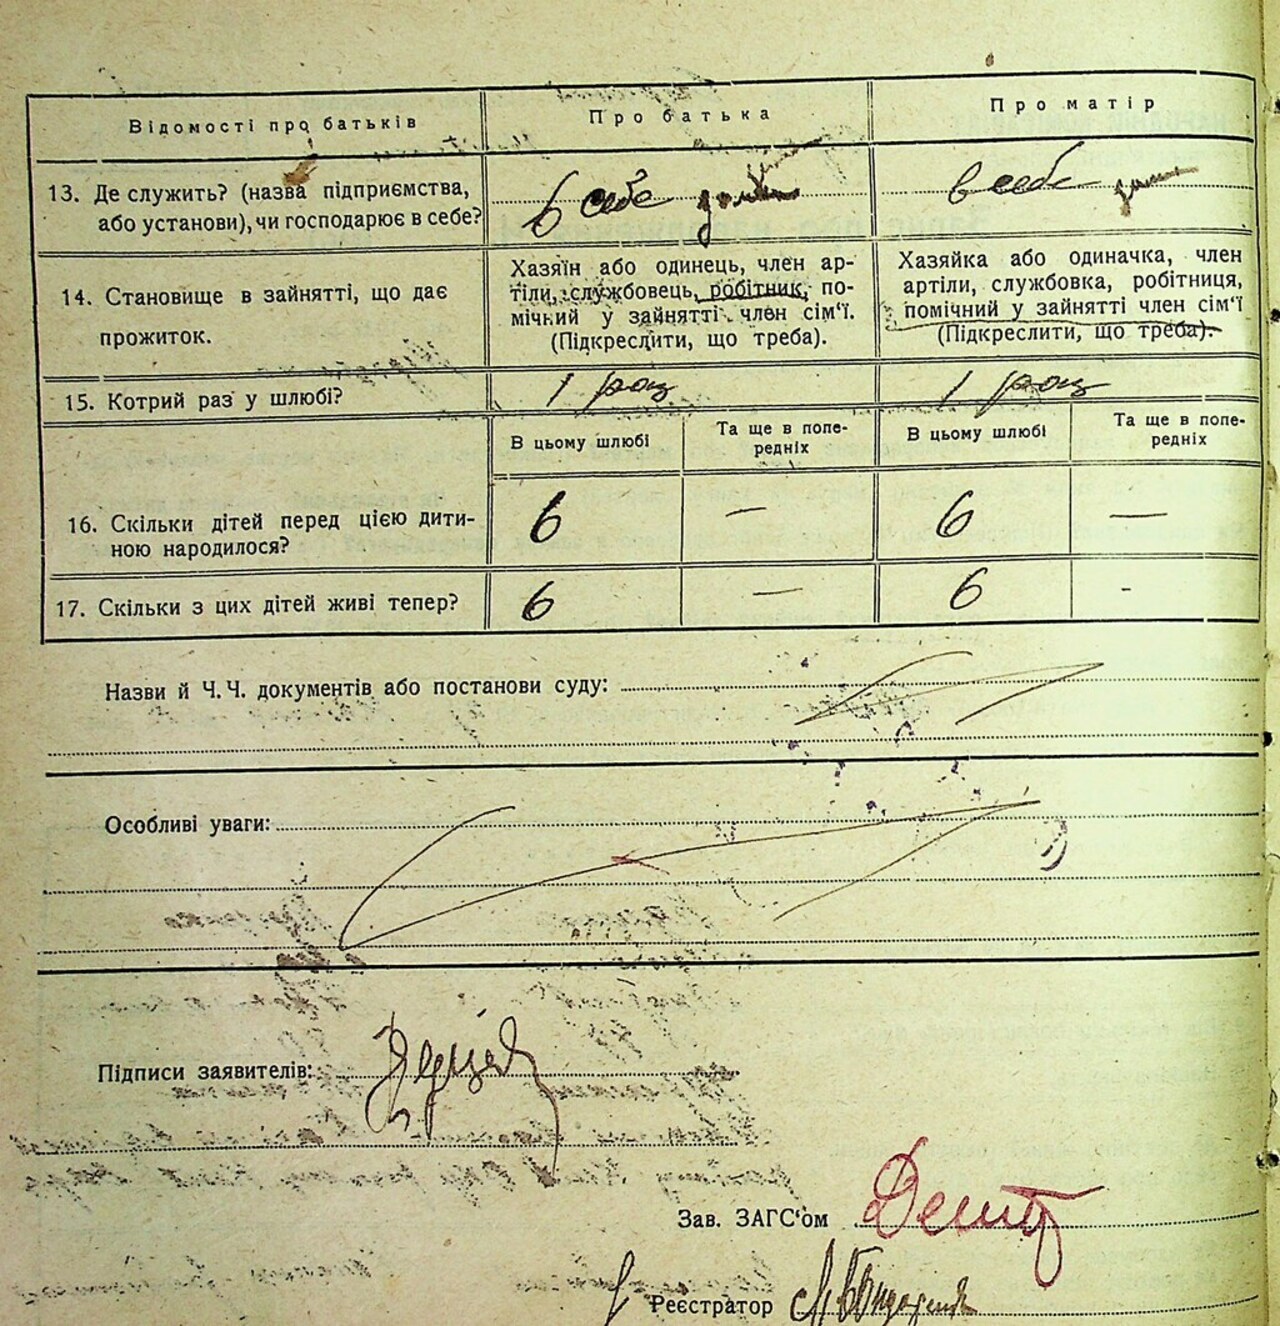 Відомості про батьків
Про батька
Про матір
13. Де служить? (назва підприємства,
або установи), чи господарює в себе?
в себе дома
в себе дома
14. Становище в зайнятті, що дає
прожиток.
Хазяїн або одинець, член ар-
тіли, службовець, робітник, по-
мічний у зайнятті член сім‘ї.
(Підкреслити, що треба).
Хазяйка або одиначка, член
артіли, службовка, робітниця,
помічний у зайнятті член сім‘ї
(Підкреслити, що треба).
15. Котрий раз у шлюбі?
1 раз
1 раз
В цьому шлюбі
Та ще в попе-
редніх
В цьому шлюбі
Та ще в попе-
редніх
16. Скільки дітей перед цією дити-
ною народилося?
6 — 6 —
17. Скільки з цих дітей живі тепер?
6 — 6 -
Назви й Ч. Ч. документів або постанови суду:
Особливі уваги:
Підписи заявителів:
Зав. ЗАГС‘ом
Реєстратор